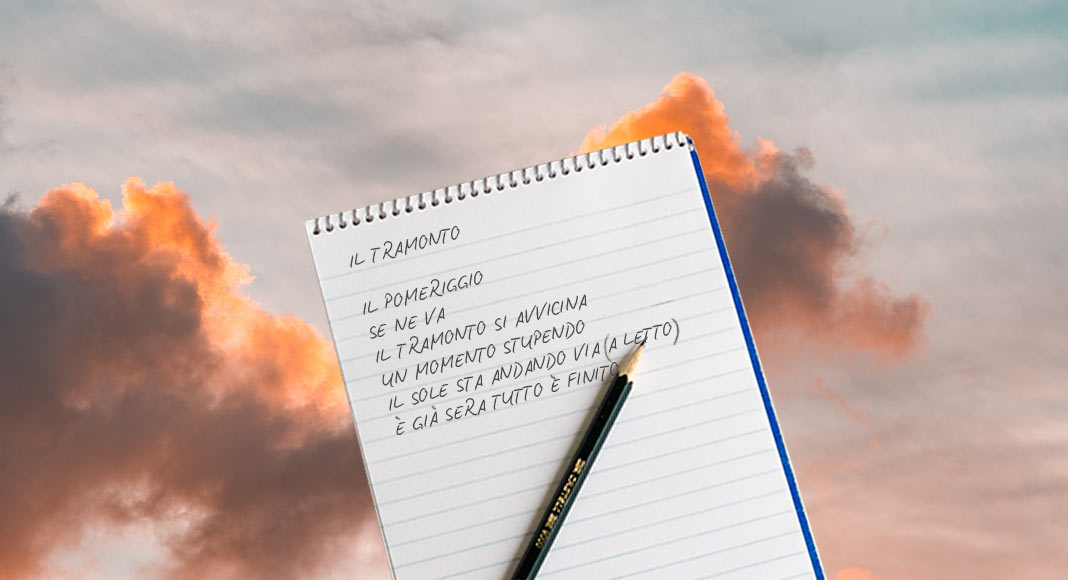 IL TRAMONTO
IL POMERIGGIO
SE NE VA
IL TRAMONTO SI AVVICINA
UN MOMENTO STUPENDO
IL SOLE STA ANDANDO VIA (A LETTO)
È GIÀ SERA TUTTO È FINITO